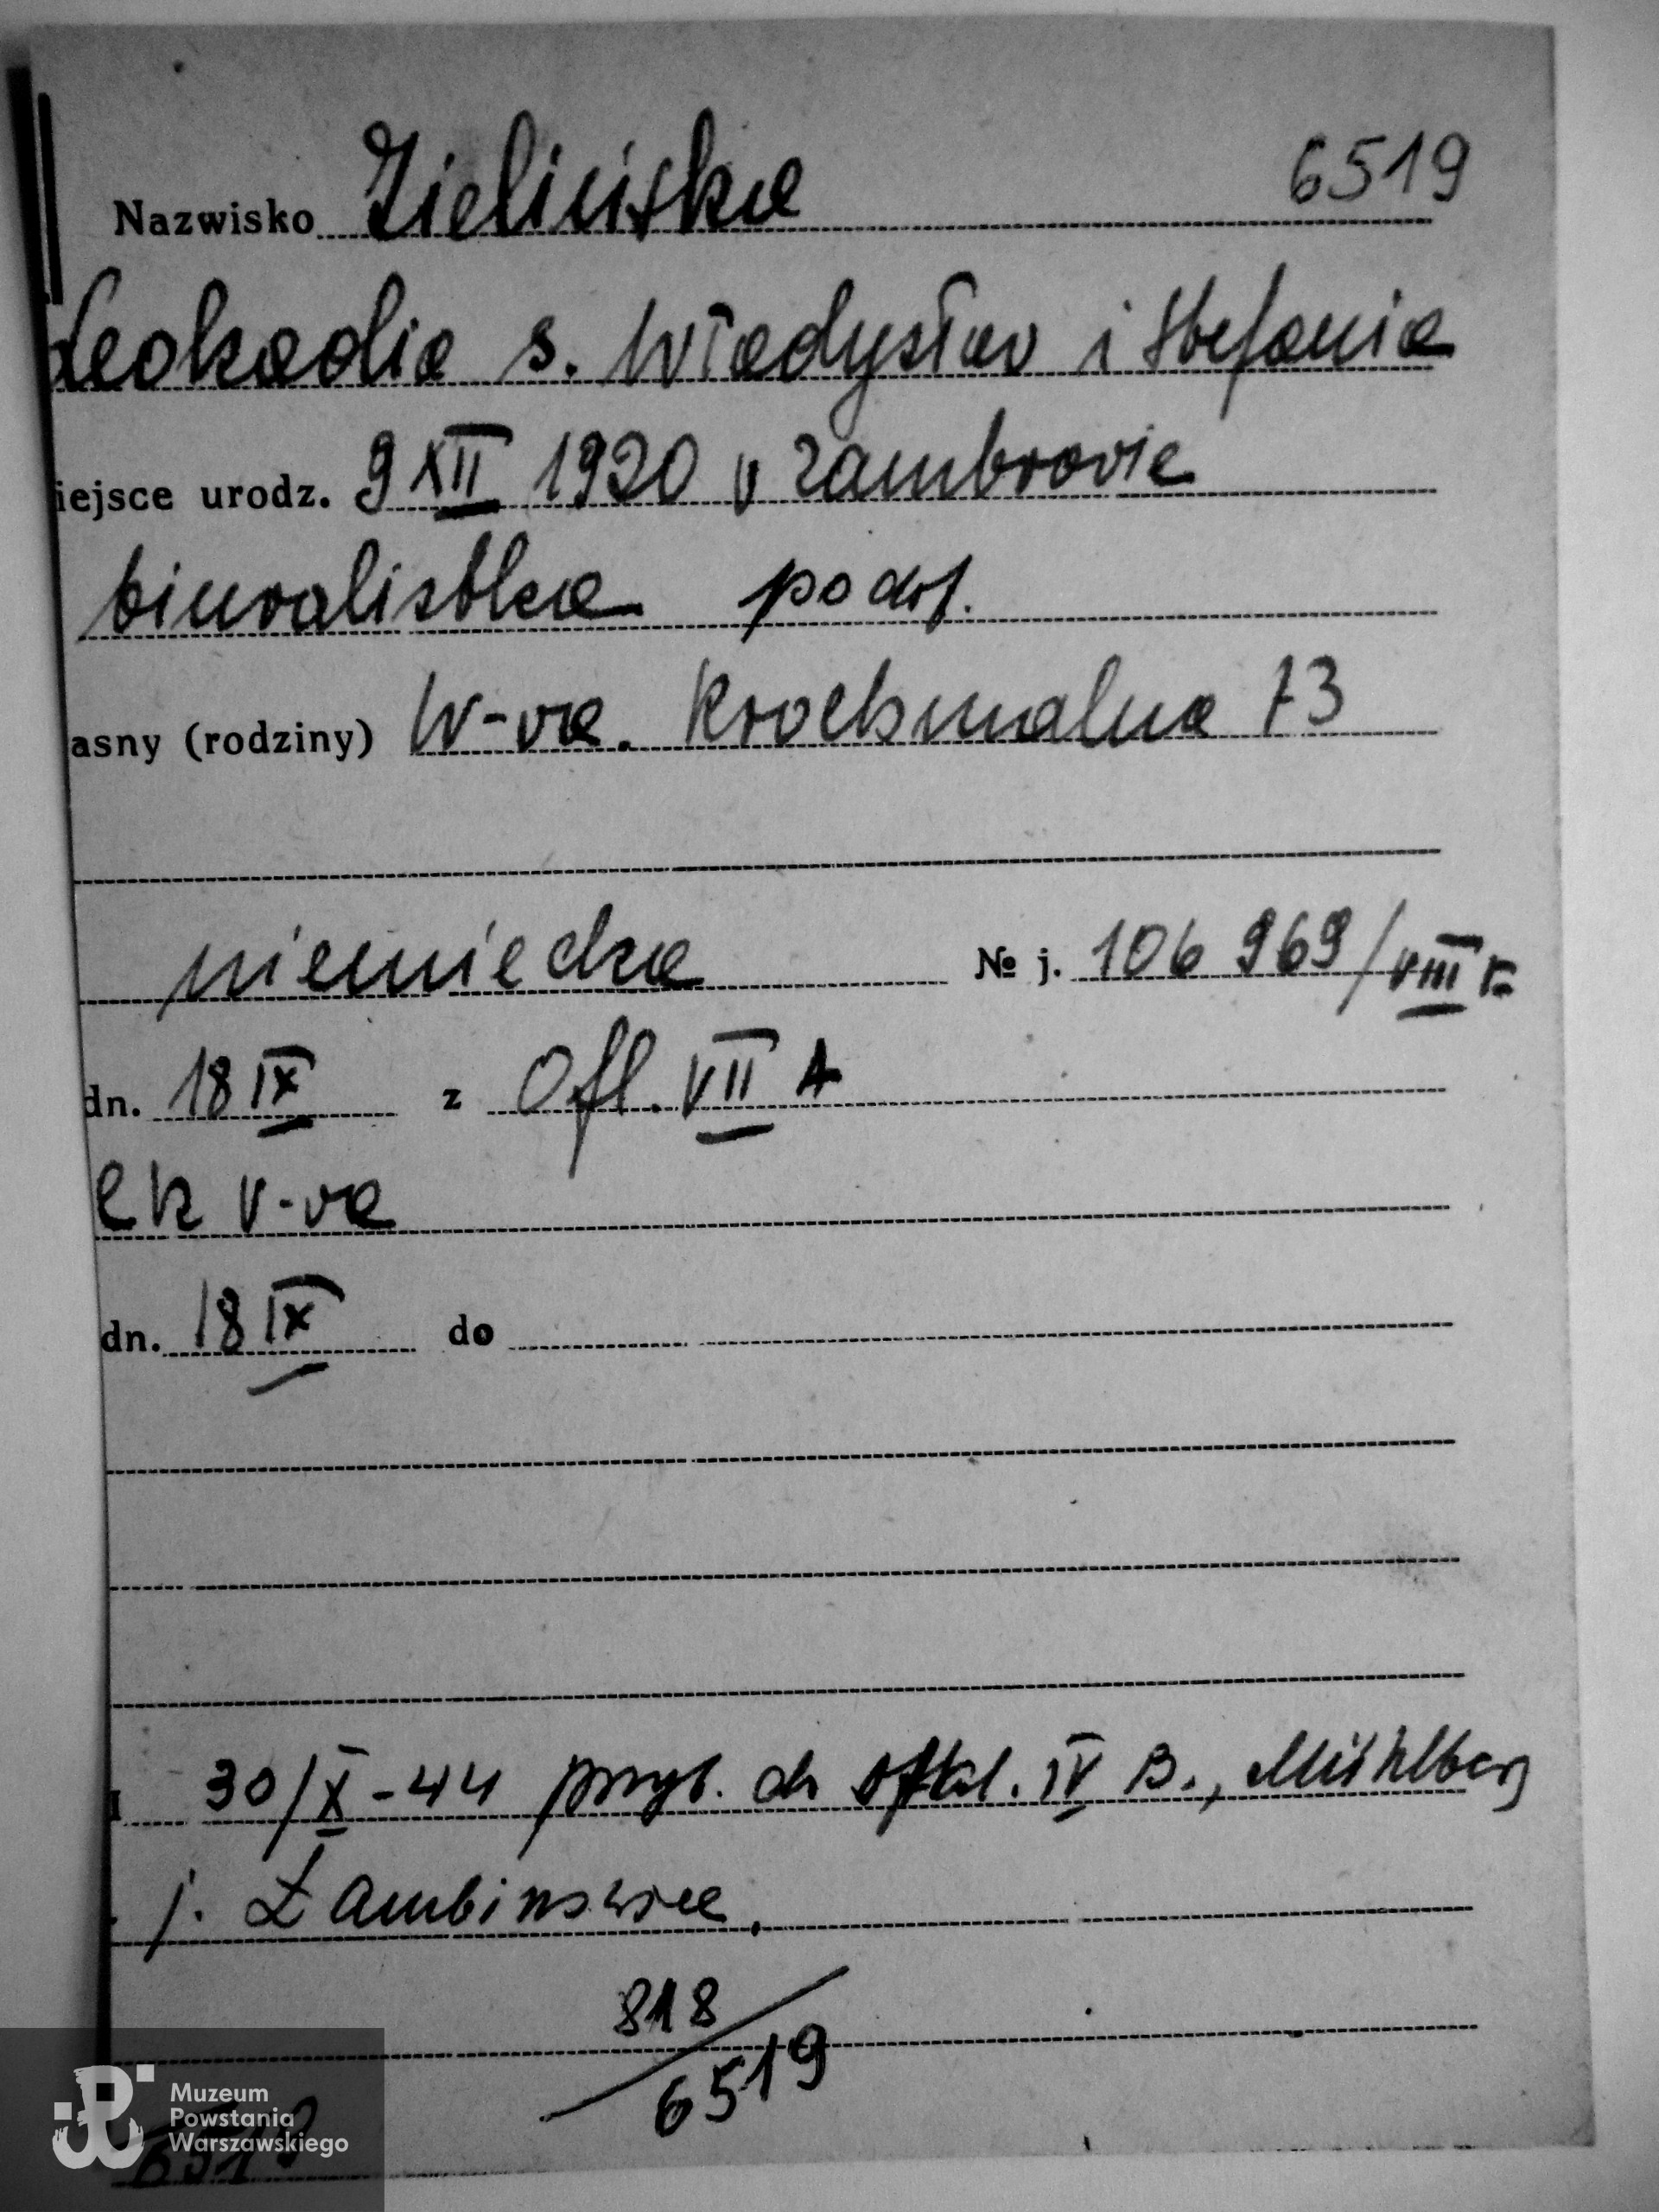 6519
Nazwisko Zielińska
Leokadia s. Władysław i Stefania
iejsce urodz. 9 XII 1920 w Zambrowie
biuralistka podof.
asny (rodziny) W-wa. Krochmalna 73
niemiecka № j. 106 969/VIII F.
dn. 18 IX z Ofl. VII A
ek W-wa
dn. 18 IX do
30/X-44 przyb. do Oflal. IV B., Mühlberg
j. Łambinowice.
818
6519
6519
Muzeum
Powstania
Warszawskiego